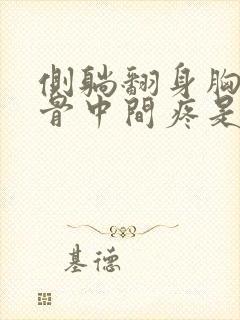 側躺翻身胸
骨中間疼是
基德